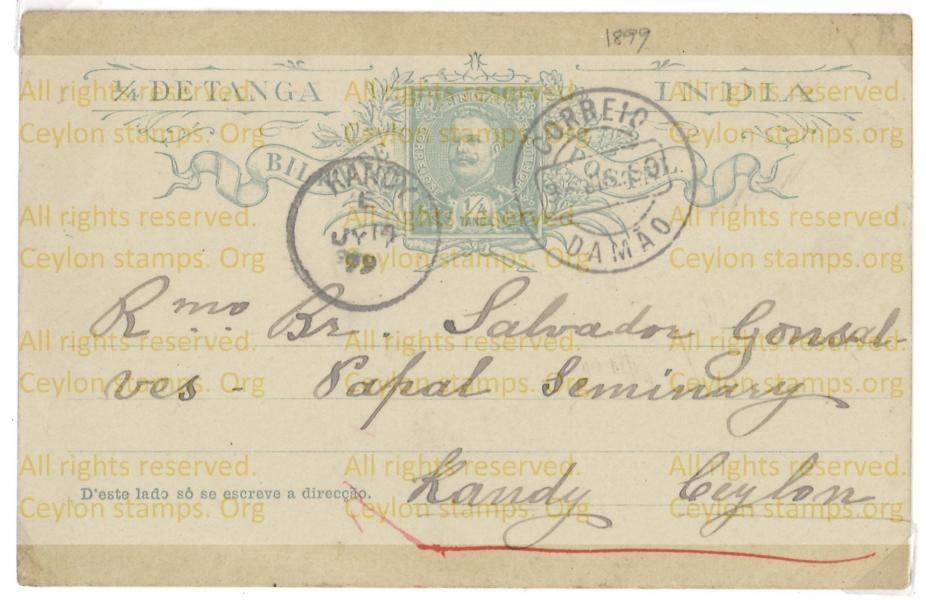 1899
¼ DE TANGA INDIA
BIL
CORREIO
DAMÃO
KANDY
JY 14
99
¼
Rmo Br. Salvador Gonsal-
ves - Papal Seminary
Kandy Ceylon
D'este lado só se escreve a direcção.
All rights reserved. All rights reserved. All rights reserved.
Ceylon stamps. Org Ceylon stamps. Org Ceylon stamps. Org
All rights reserved. All rights reserved. All rights reserved.
Ceylon stamps. Org Ceylon stamps. Org Ceylon stamps. org
All rights reserved. All rights reserved. All rights reserved.
Ceylon stamps. Org Ceylon stamps. org Ceylon stamps. org
All rights reserved. All rights reserved. All rights reserved.
Ceylon stamps. Org Ceylon stamps. Org Ceylon stamps. Org